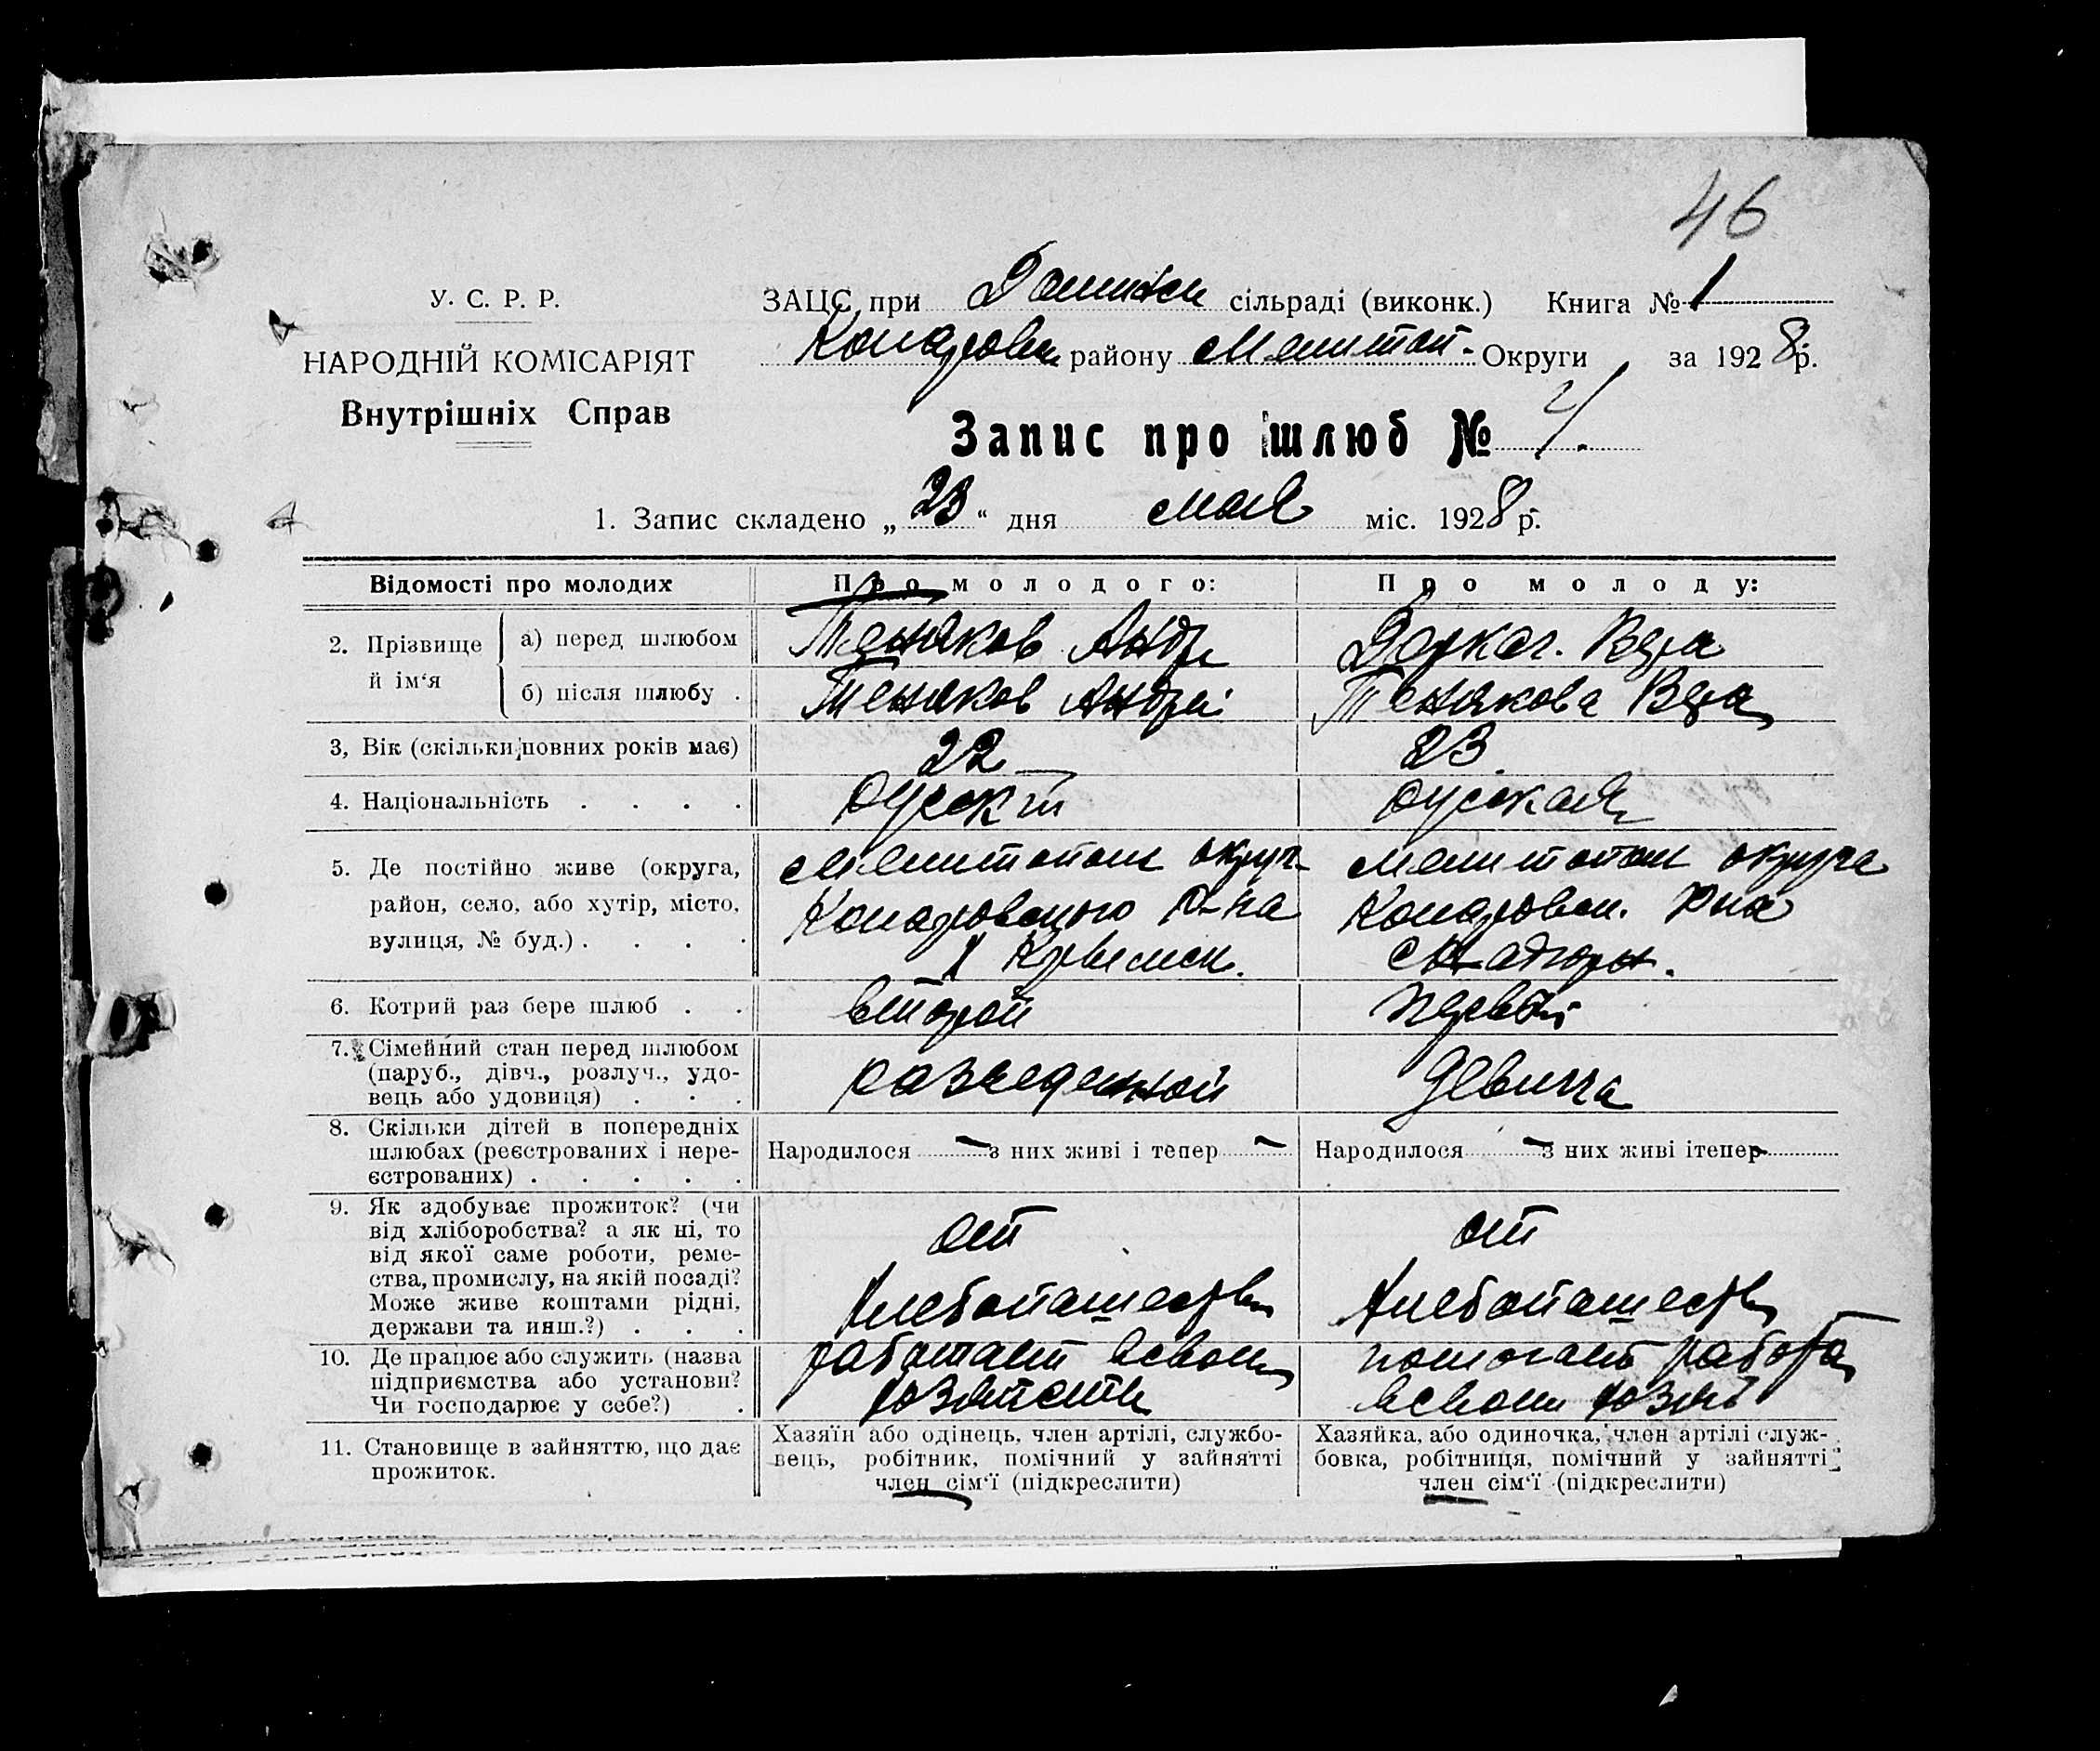 46
У. С. Р. Р.
НАРОДНІЙ КОМІСАРІЯТ
Внутрішніх Справ
ЗАЦС при сільраді (виконк.) Книга № 1
району Мелитоп. Округи за 1928 р.
Запис про шлюб № 4.
1. Запис складено „23“ дня мая міс. 1928 р.
Відомості про молодих Про молодого: Про молоду:
2. Прізвище й ім‘я
а) перед шлюбом Теняков Андр Вера
б) після шлюбу . Теняков Андрей Тенякова Вера
3, Вік (скільки повних років має) 22 23
4. Національність . . . . русский русская
5. Де постійно живе (округа,
район, село, або хутір, місто,
вулиця, № буд.) . . . .
Мелитопол округ
р-на
Мелитопол округа
рна
6. Котрий раз бере шлюб . . второй первый
7. Сімейний стан перед шлюбом
(паруб., дівч., розлуч., удо-
вець або удовиця) . . .
разведенной девица
8. Скільки дітей в попередніх
шлюбах (реєстрованих і нере-
єстрованих) . . . . .
Народилося — з них живі і тепер — Народилося — з них живі ітепер —
9. Як здобуває прожиток? (чи
від хліборобства? а як ні, то
від якої саме роботи, реме-
ства, промислу, на якій посаді?
Може живе коштами рідні,
держави та инш.?) . . .
от
хлебопашества
от
хлебопашества
10. Де працює або служить (назва
підприємства або установи?
Чи господарює у себе?) .
работает всвоем
помогает работа
всвоем
11. Становище в зайняттю, що дає
прожиток.
Хазяїн або одінець, член артілі, службо-
вець, робітник, помічний у зайнятті
член сім‘ї (підкреслити)
Хазяйка, або одиночка, член артілі служ-
бовка, робітниця, помічний у зайнятті
член сім‘ї (підкреслити)